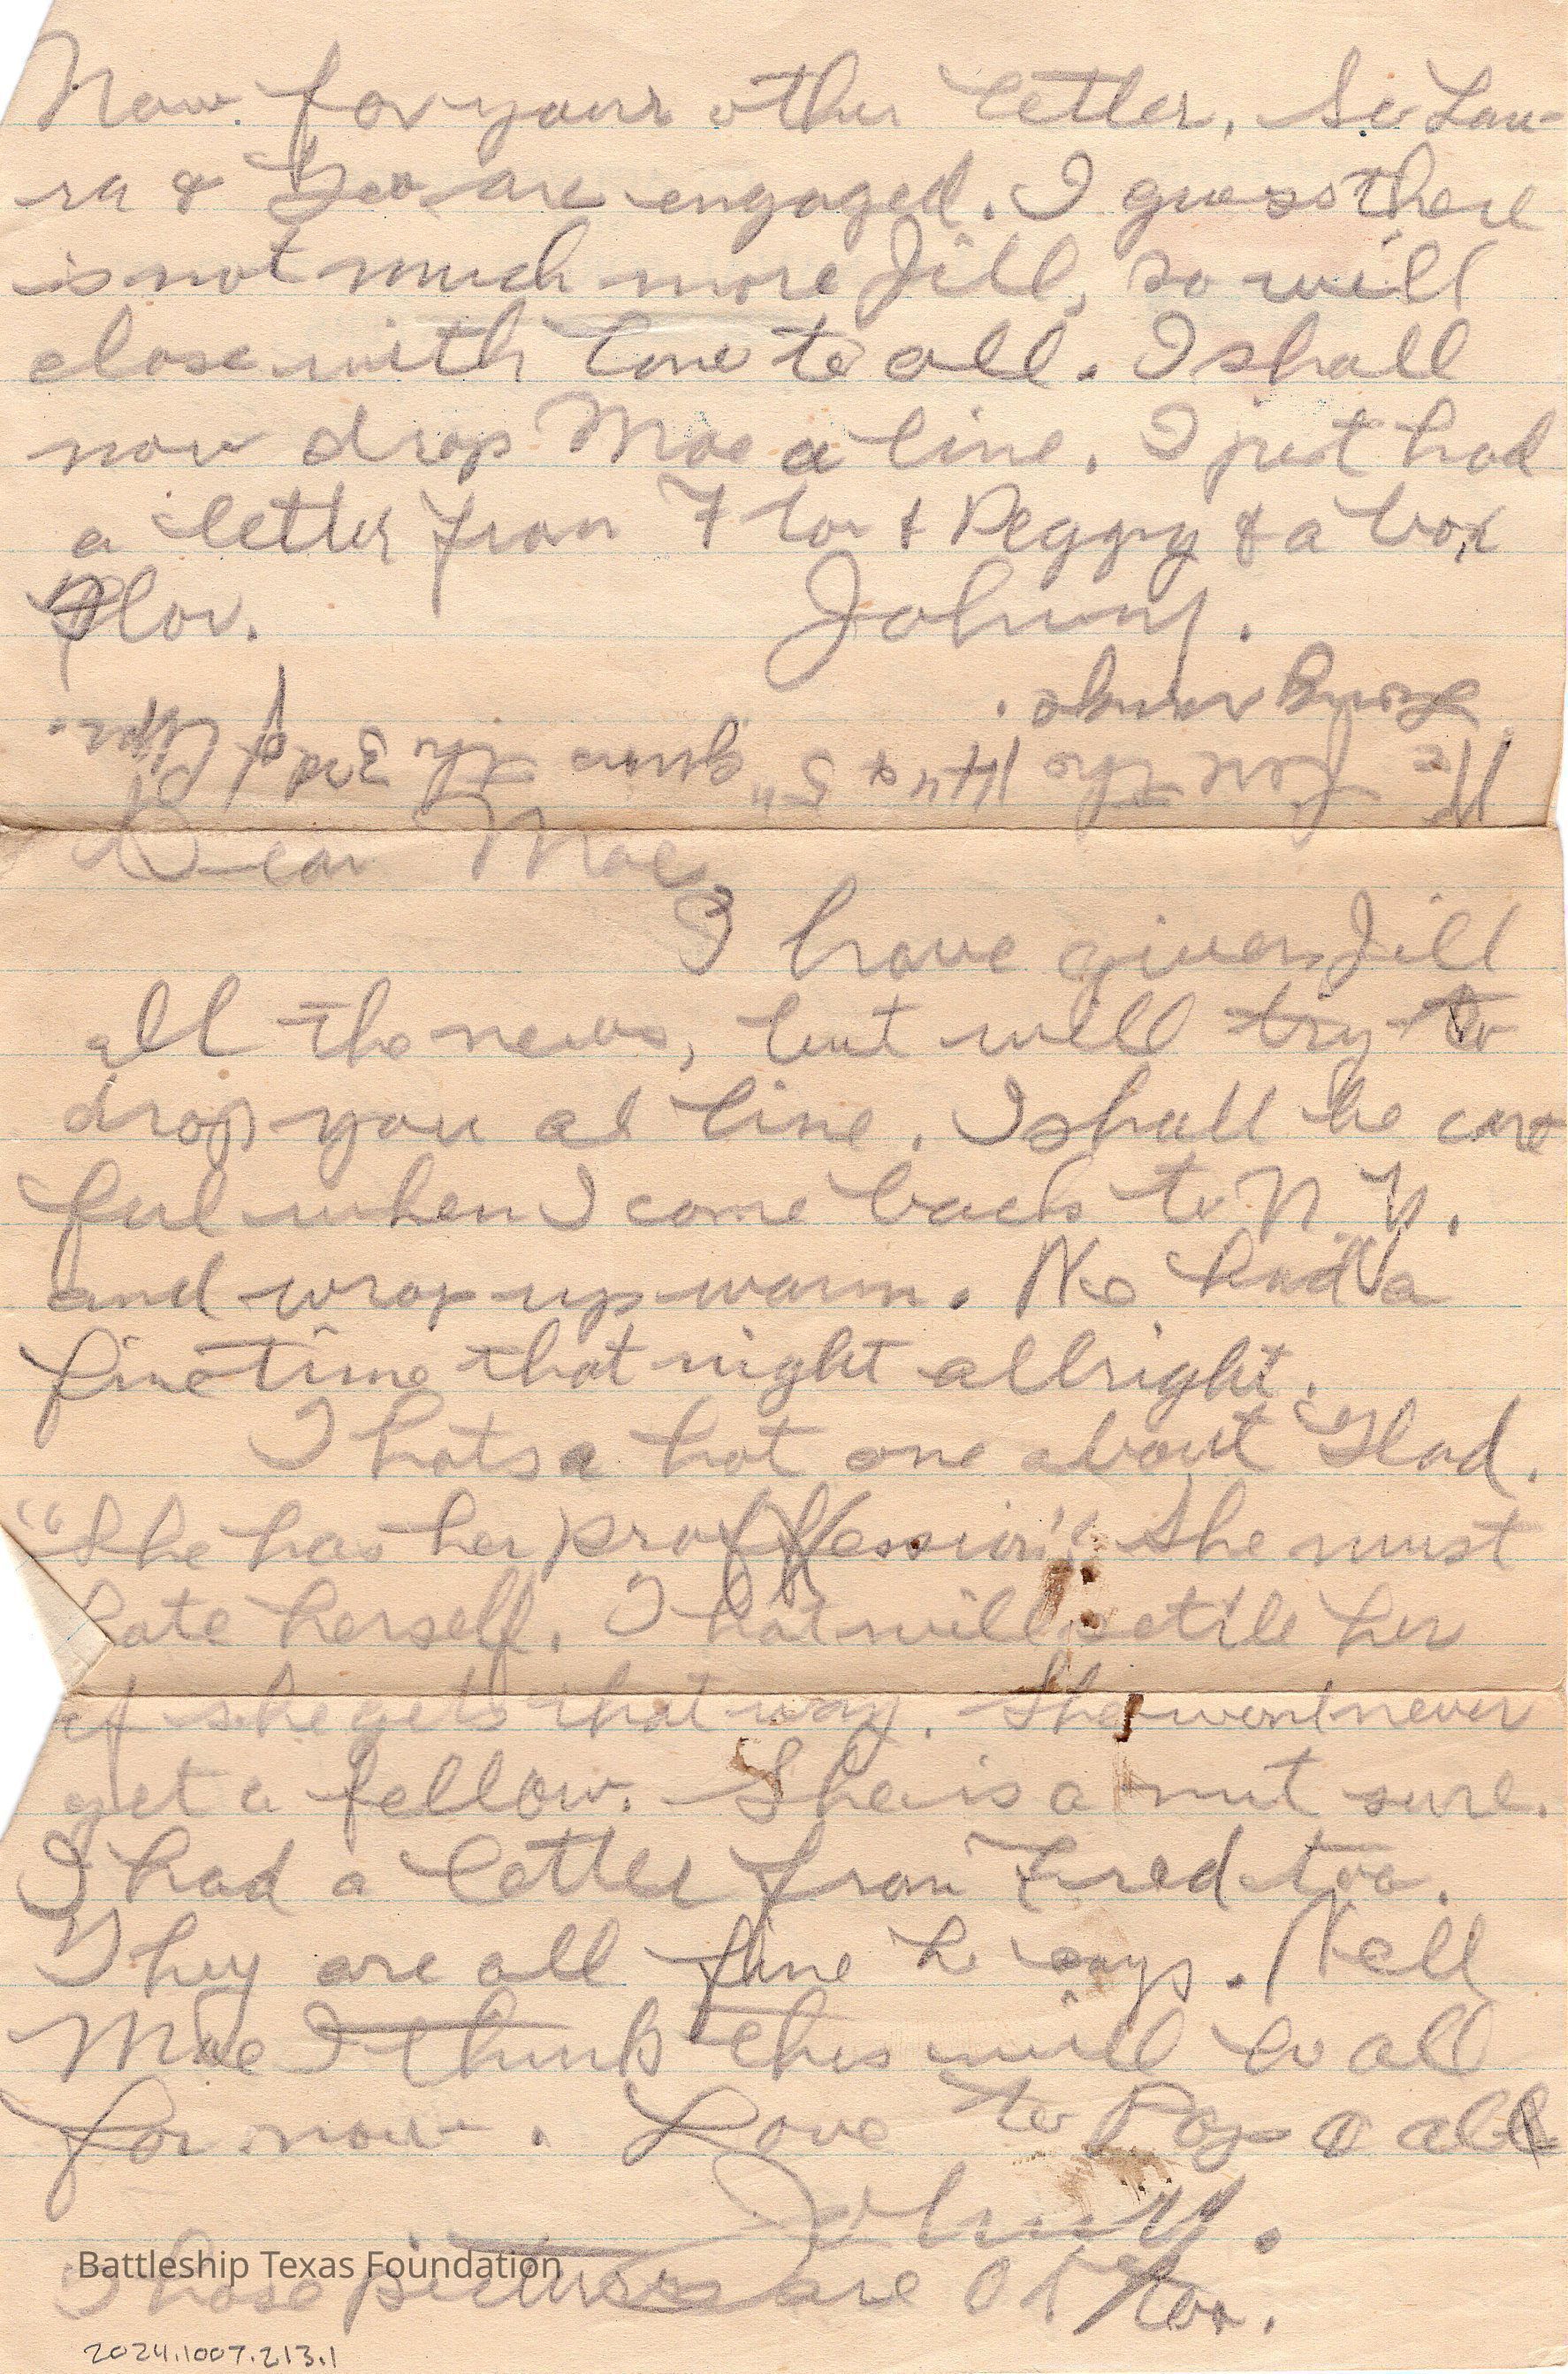 Now for your other letter. So Lau-
ra & Geo are engaged. I guess there
is not much more Jill, so will
close with love to all. I shall
now drop Mae a line. I just had
a letter from Flor & Peggy & a box
Flor.
Johnny.
We for the 4th & 5th guns the 3rd of Mar.
long range.
Dear Mae,
I have given Jill
all the news, but will try to
drop you a line. I shall be care
ful when I come back to N.Y.
and wrap up warm. We had a
fine time that night allright.
Thats a hot one about Glad.
"She has her proffession". She must
hate herself. That will settle her
if she gets that way. She wont never
get a fellow. She is a nut sure.
I had a letter from Fred too.
They are all fine he says. Well
Mae I think this will be all
for now. Love to Pop & all
Johnny.
Those pictures are OK too.
Battleship Texas Foundation
2024.1007.213.1